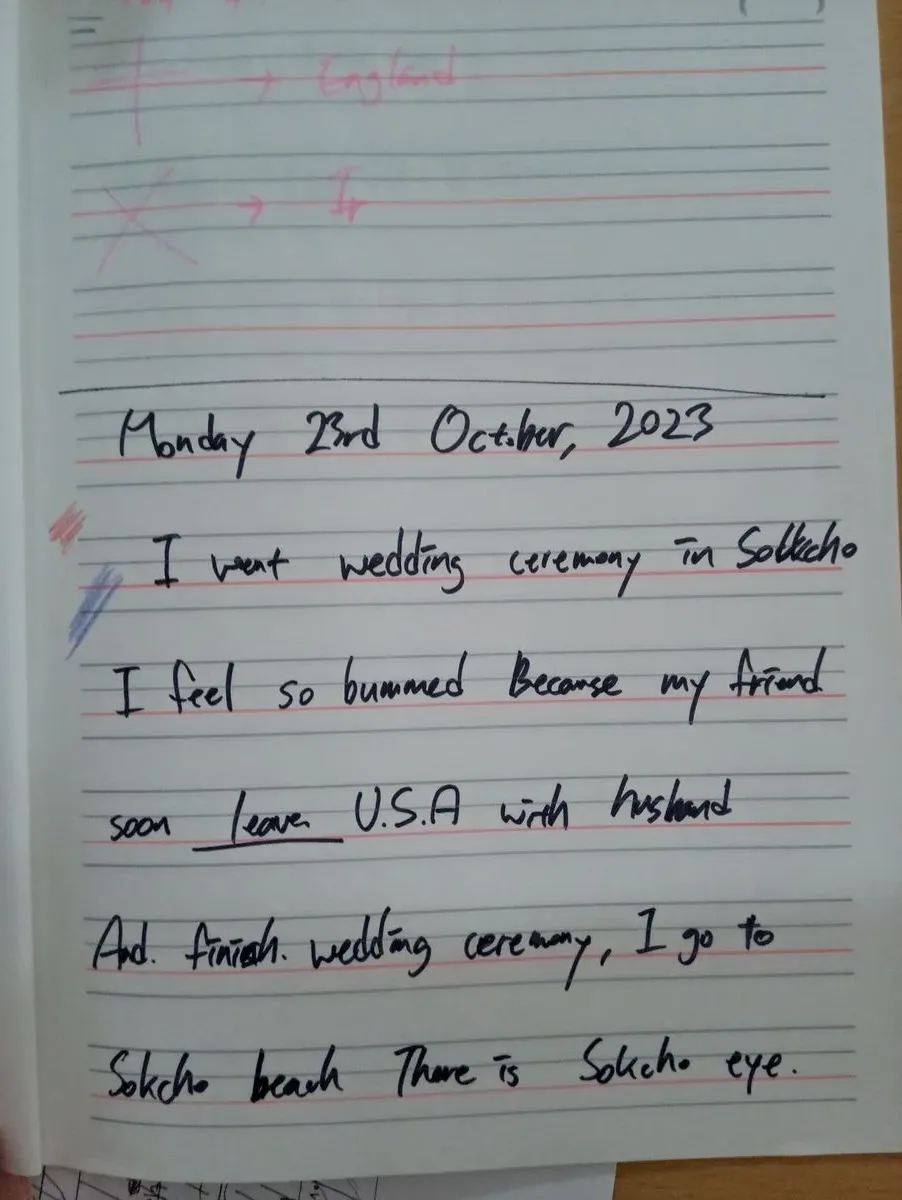 → England
→ Ir
Monday 23rd October, 2023
I went wedding ceremony in Sokkcho
I feel so bummed Because my friend
soon leave U.S.A with husband
And. finish. wedding ceremony, I go to
Sokcho beach There is Sokcho eye.